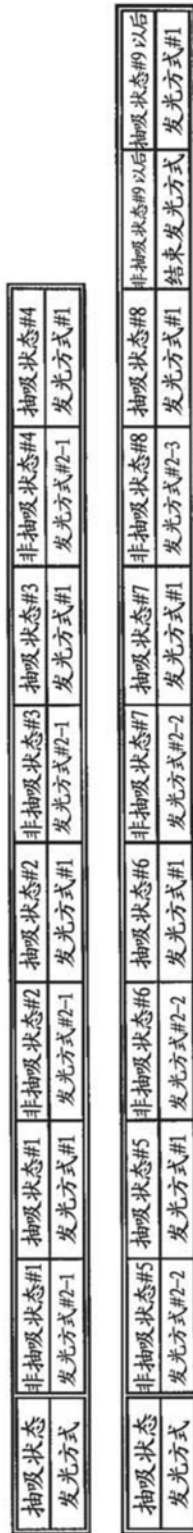 抽吸状态 非抽吸状态#1 抽吸状态#1 非抽吸状态#2 抽吸状态#2 非抽吸状态#3 抽吸状态#3 非抽吸状态#4 抽吸状态#4
发光方式 发光方式#2-1 发光方式#1 发光方式#2-1 发光方式#1 发光方式#2-1 发光方式#1 发光方式#2-1 发光方式#1
抽吸状态 非抽吸状态#5 抽吸状态#5 非抽吸状态#6 抽吸状态#6 非抽吸状态#7 抽吸状态#7 非抽吸状态#8 抽吸状态#8 非抽吸状态#9以后 抽吸状态#9以后
发光方式 发光方式#2-2 发光方式#1 发光方式#2-2 发光方式#1 发光方式#2-2 发光方式#1 发光方式#2-3 发光方式#1 结束发光方式 发光方式#1